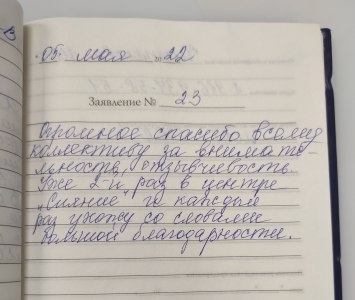 05 мая 2022
Заявление № 23
Огромное спасибо всему
коллективу за внимате-
льность, отзывчивость.
Уже 2-й раз в центре
„Сияние" и каждый
раз ухожу со словами
большой благодарности.